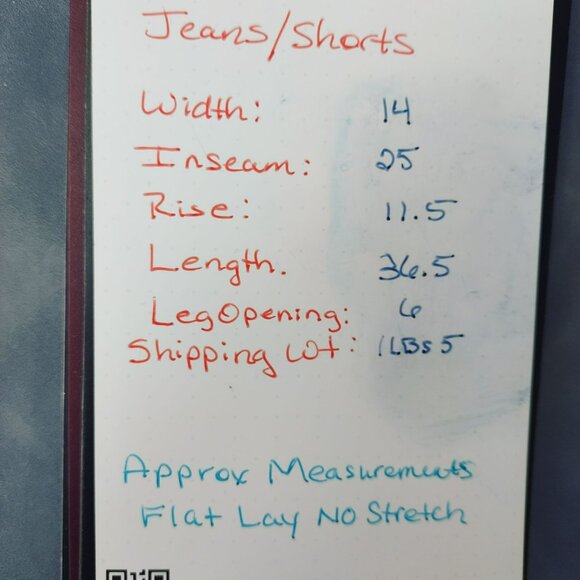 Jeans/Shorts
Width: 14
Inseam: 25
Rise: 11.5
Length. 36.5
Leg Opening: 6
Shipping Wt: 1LBs 5
Approx Measurements
Flat Lay No Stretch